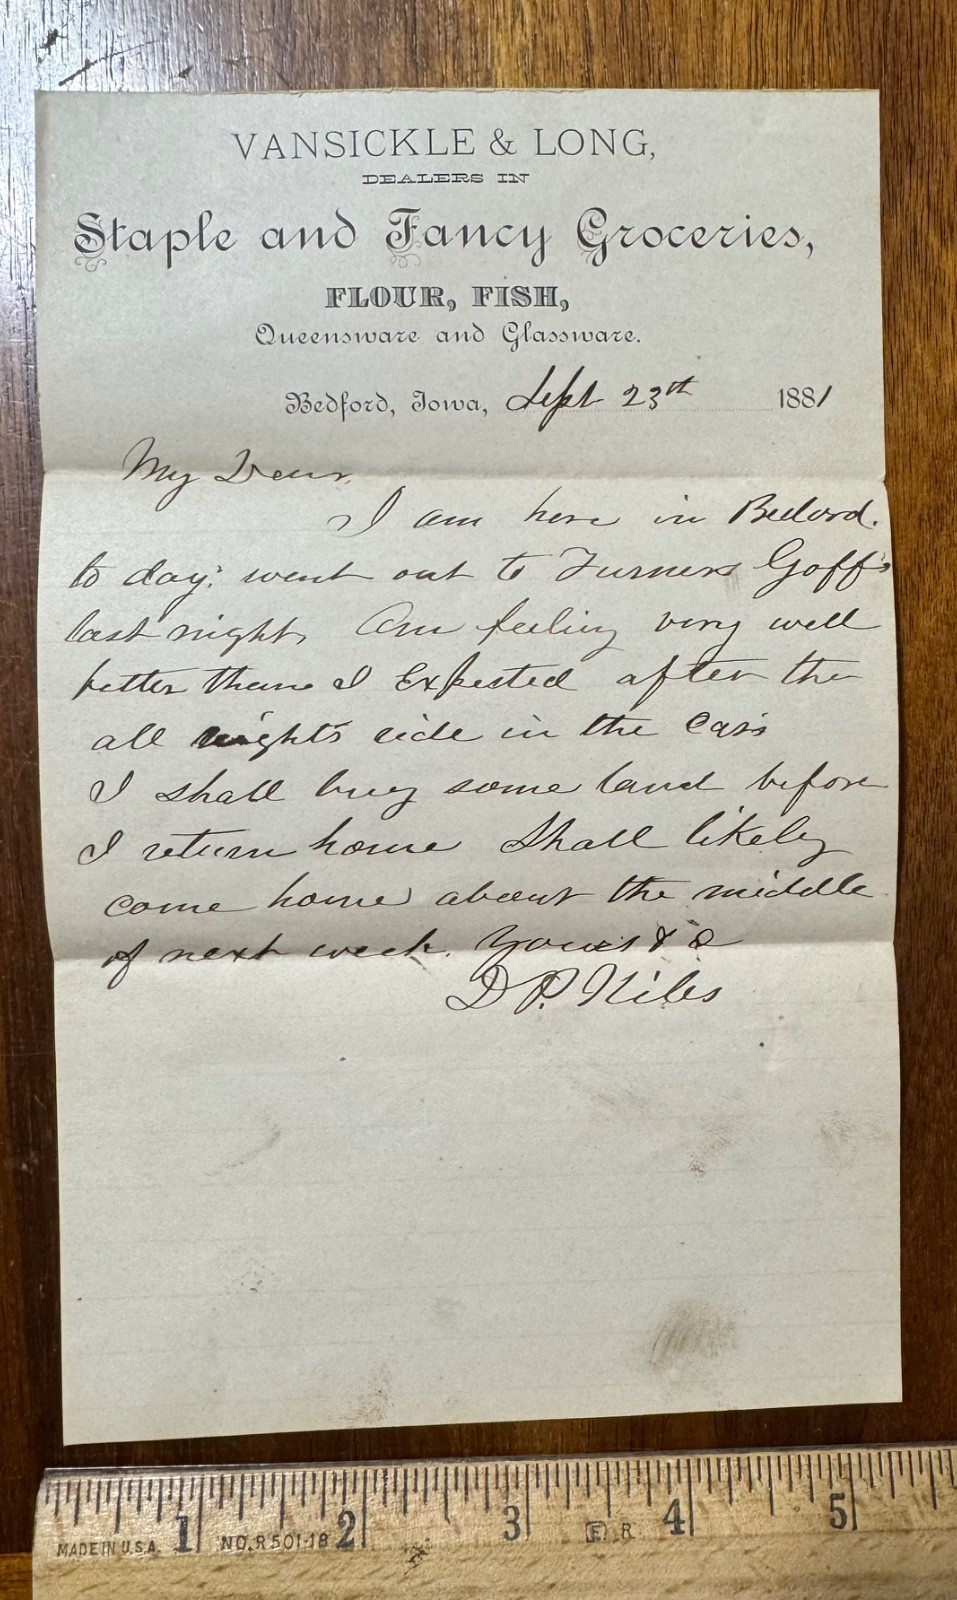 VANSICKLE & LONG,
DEALERS IN
Staple and Fancy Groceries,
FLOUR, FISH,
Queensware and Glassware.
Bedford, Iowa, Sept 23th 1881
My Dear
I am here in Bedord.
to day: went out to Turners Goff's
last night, Am feeling very well
better than I Expected after the
all nights ride in the Cars
I shall buy some land before
I return home Shall likely
come home about the middle
of next week. Yours & c
D P. Niles
1 2 3 4 5
MADE IN U.S.A. NO. R501-18 E R